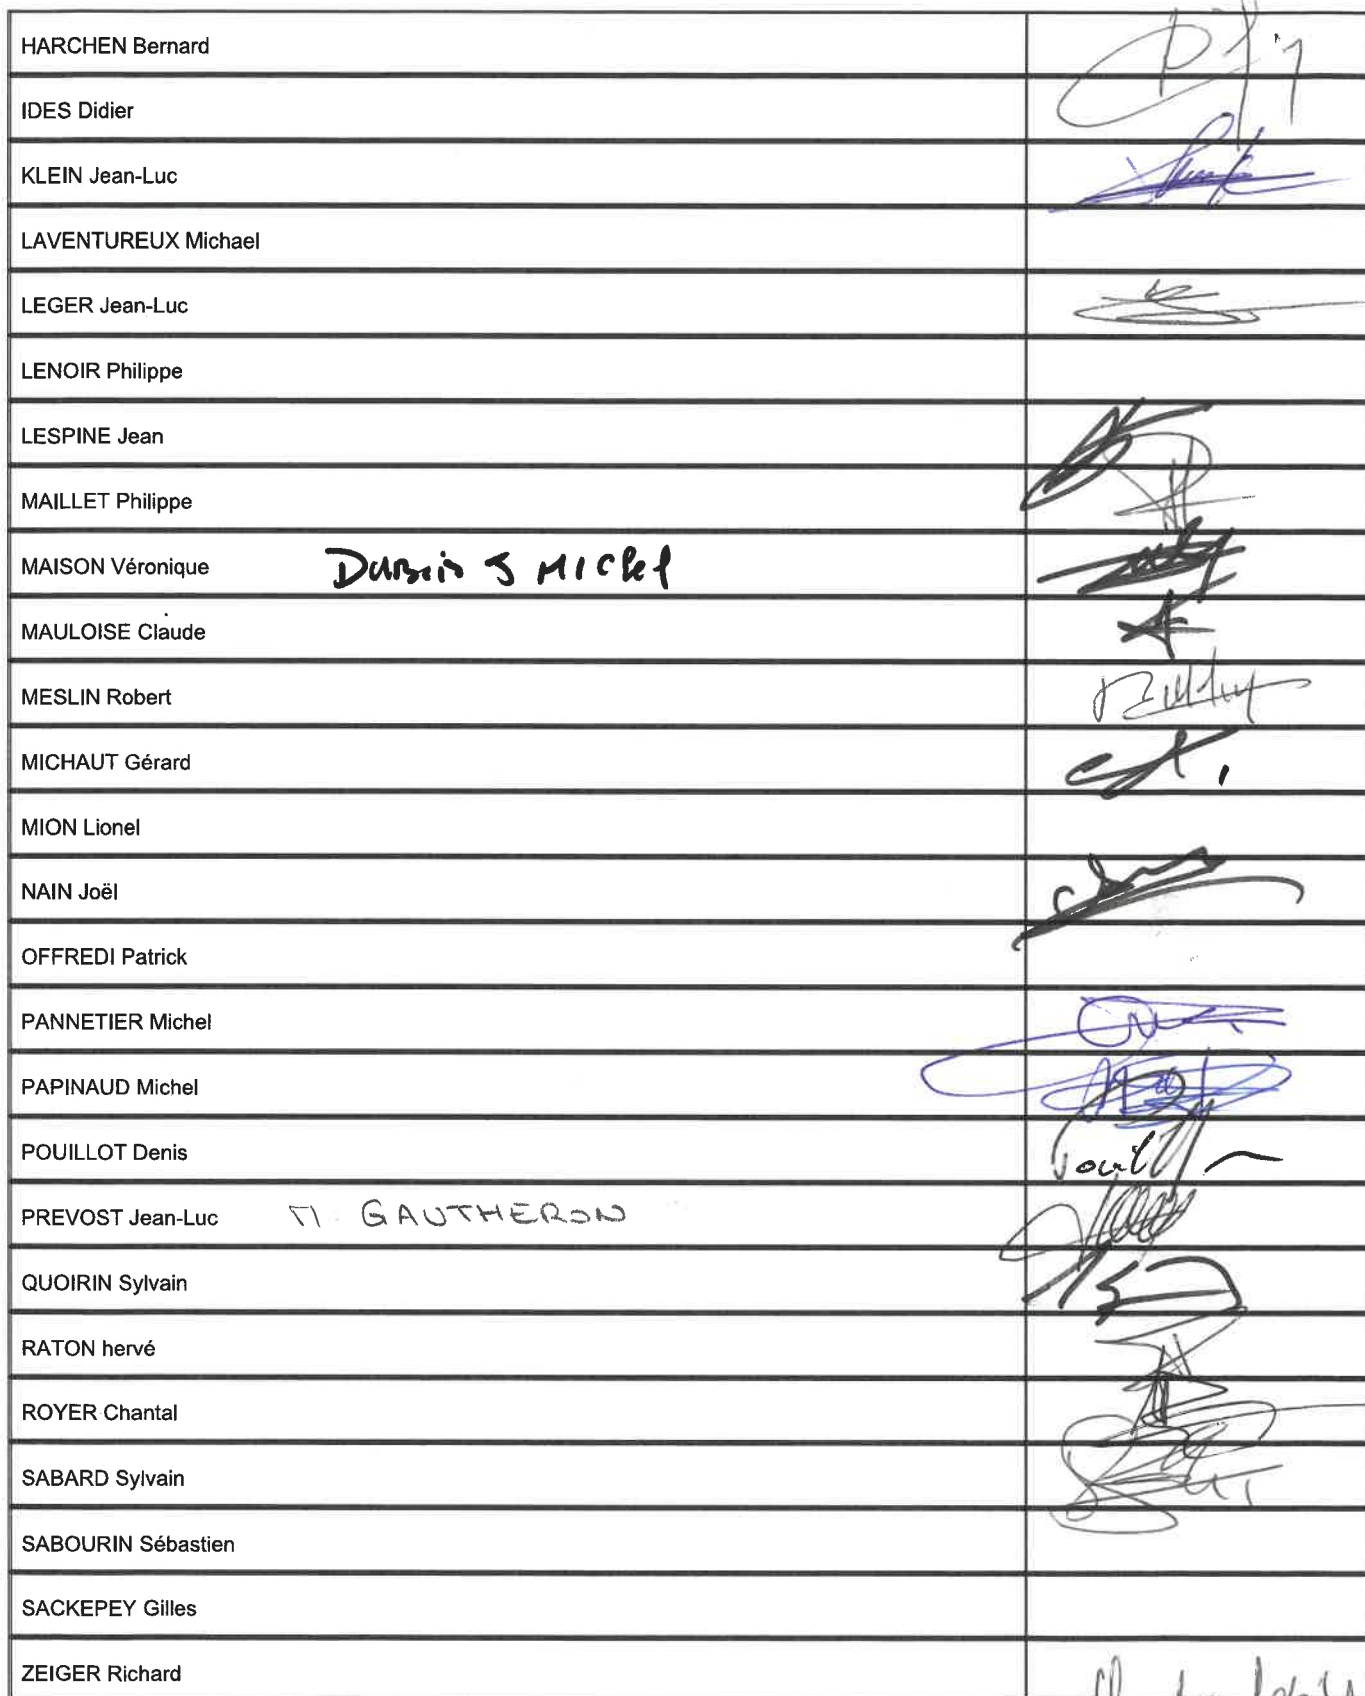 HARCHEN Bernard
IDES Didier
KLEIN Jean-Luc
LAVENTUREUX Michael
LEGER Jean-Luc
LENOIR Philippe
LESPINE Jean
MAILLET Philippe
MAISON Véronique
MAULOISE Claude
MESLIN Robert
MICHAUT Gérard
MION Lionel
NAIN Joël
OFFREDI Patrick
PANNETIER Michel
PAPINAUD Michel
POUILLOT Denis
PREVOST Jean-Luc M. GAUTHERON
QUOIRIN Sylvain
RATON hervé
ROYER Chantal
SABARD Sylvain
SABOURIN Sébastien
SACKEPEY Gilles
ZEIGER Richard